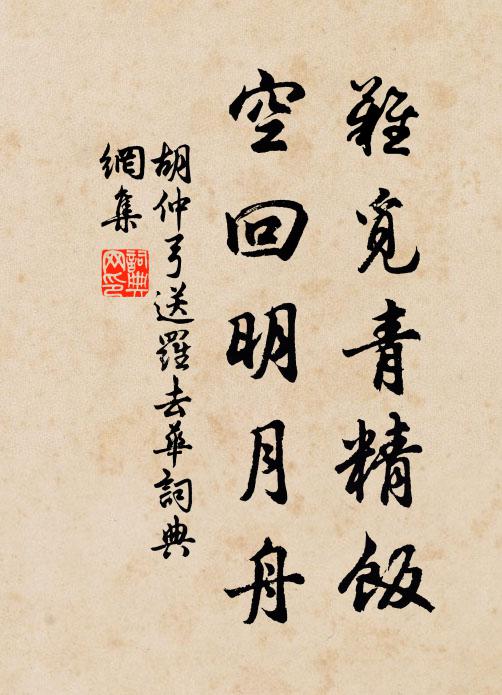 難覓青精飯
空回明月舟
胡仲弓送羅去華詞典
網集
詞典
网印